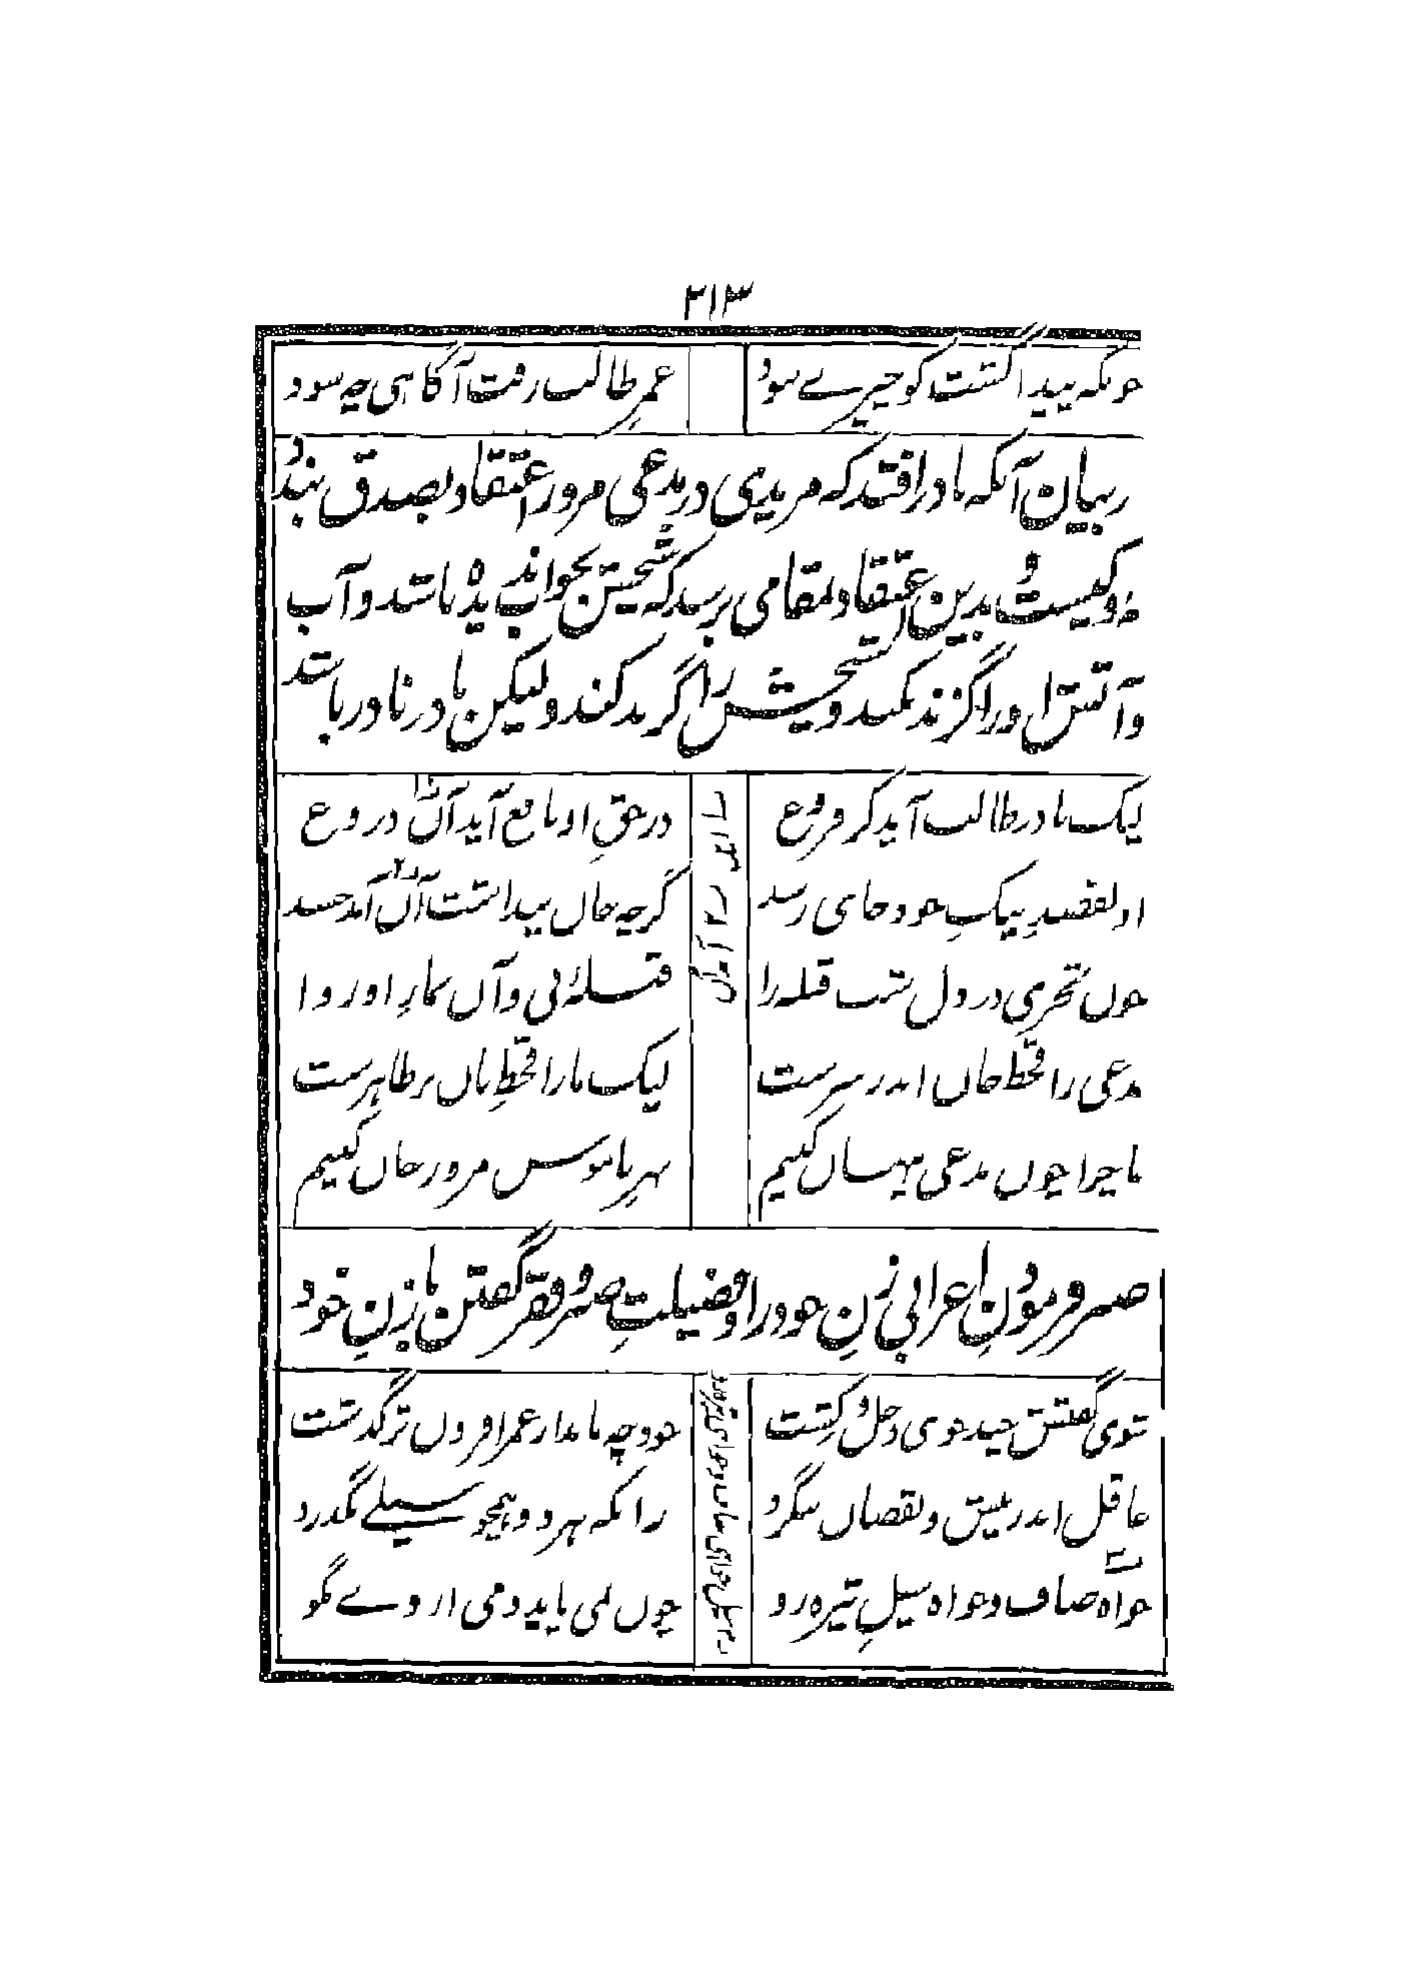 ۲۱۳
چونکه پیدا گشت کو چیزے نبود عمرِ طالب رفت آگاهی چه سود
دربیان آنکه نادر افتد که مریدی در مدعی مزور اعتقاد بصدق بندد
که او کیست و بدین اعتقاد بمقامی برسد که شیخش بخواب ندیده باشد و آب
و آتش او را گزند نکند و شیخش را گزند کند ولیکن نادر نادر باشد
لیک نادر طالب آید کز فروغ در حقِ او نافع آید آں دروغ
او بقصدِ نیکِ خود جای رسد گرچه جاں پنداشت آں آمد جسد
چوں تحری در دلِ شب قبله را قبله نی و آں نمازِ او روا
مدعی را قحطِ جاں اندر سرست لیک ما را قحطِ ناں بر ظاهرست
ما چرا چوں مدعی پنہاں کنیم بہرِ ناموس مزور جاں کنیم
صبر فرمودنِ اعرابی زنِ خود را و فضیلتِ صبر و فقر گفتن با زنِ خود
شوی گفتش چند جوی دخل و کِشت خود چه ماند از عمر افزوں تر گذشت
عاقل اندر بیش و نقصاں ننگرد زانکه هر دو همچو سیلے بگذرد
خواه صاف و خواه سیلِ تیره رو چوں نمی پاید دمی از وے مگو